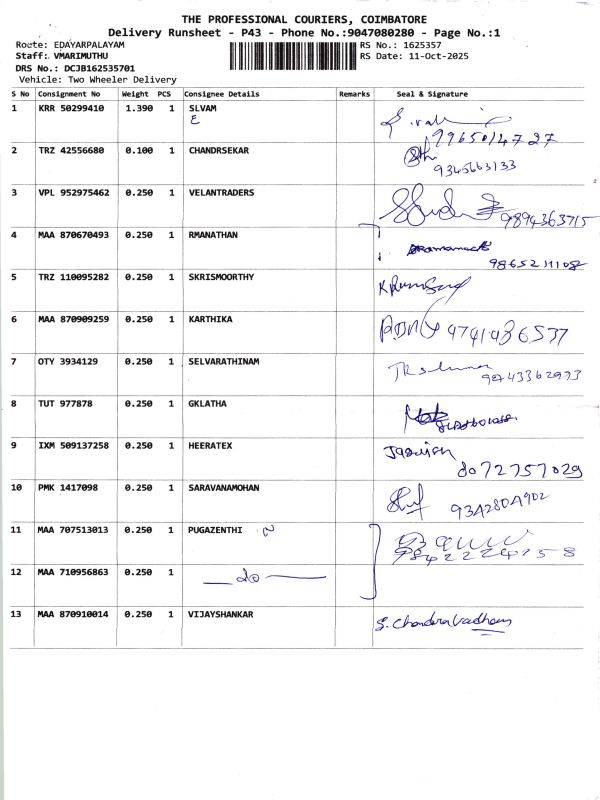 THE PROFESSIONAL COURIERS, COIMBATORE
Delivery Runsheet - P43 - Phone No.:9047080280 - Page No.:1
Route: EDAYARPALAYAM
RS No.: 1625357
Staff: VMARIMUTHU
RS Date: 11-Oct-2025
DRS No.: DCJB162535701
Vehicle: Two Wheeler Delivery
S No Consignment No Weight PCS Consignee Details Remarks Seal & Signature
1 KRR 50299410 1.390 1 SLVAM
E
9965014727
2 TRZ 42556680 0.100 1 CHANDRSEKAR
9345663133
3 VPL 952975462 0.250 1 VELANTRADERS
9894363715
4 MAA 870670493 0.250 1 RMANATHAN
5 TRZ 110095282 0.250 1 SKRISMOORTHY
6 MAA 870909259 0.250 1 KARTHIKA
4741486537
7 OTY 3934129 0.250 1 SELVARATHINAM
8 TUT 977878 0.250 1 GKLATHA
9 IXM 509137258 0.250 1 HEERATEX
8072757029
10 PMK 1417098 0.250 1 SARAVANAMOHAN
9342804902
11 MAA 707513013 0.250 1 PUGAZENTHI N
9842224158
12 MAA 710956863 0.250 1 do
13 MAA 870910014 0.250 1 VIJAYSHANKAR
S. Chandravadhany